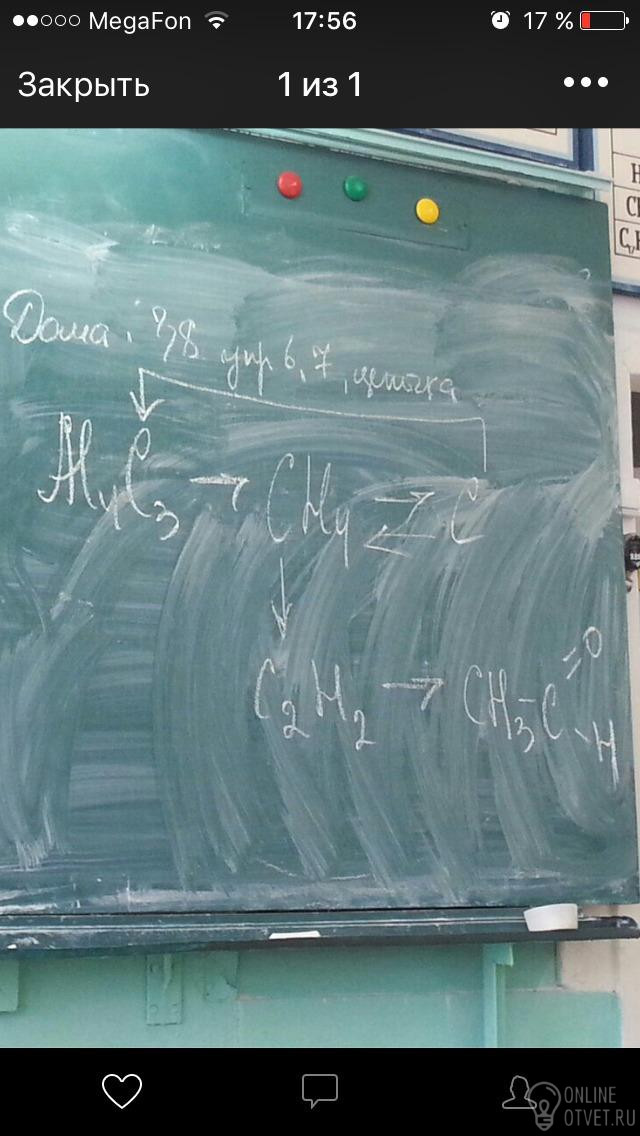 MegaFon 17:56 17 %
Закрыть 1 из 1
Дома. §8 упр 6, 7, цепочка
Al₄C₃ → CH₄ ⇄ C
↓
C₂H₂ → CH₃-C =O -H
ONLINE
OTVET.RU